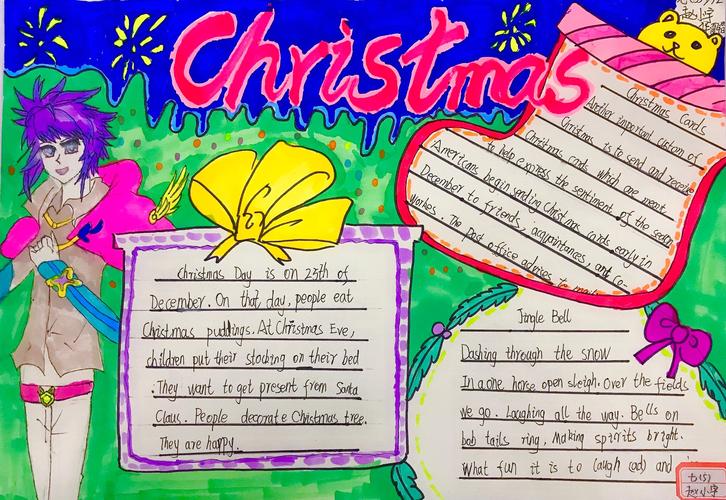 Christmas
Christmas Cards
Another important custom of
Christmas is to send and receive
Christmas cards which are meant
to help express the sentiment of the season
Americans begin sending Christmas cards early in
December to friends, acquaintances, and co-
workes. The post office advises to mail
Christmas Day is on 25th of
December. On that day, people eat
Christmas puddings. At Christmas Eve,
children put their stocking on their bed
. They want to get present from Santa
Claus. People decorate Christmas tree.
They are happy.
Jingle Bell
Dashing through the snow
In a one horse open sleigh. Over the fields
we go. Laughing all the way. Bells on
bob tails ring. Making spirits bright.
What fun it is to laugh and